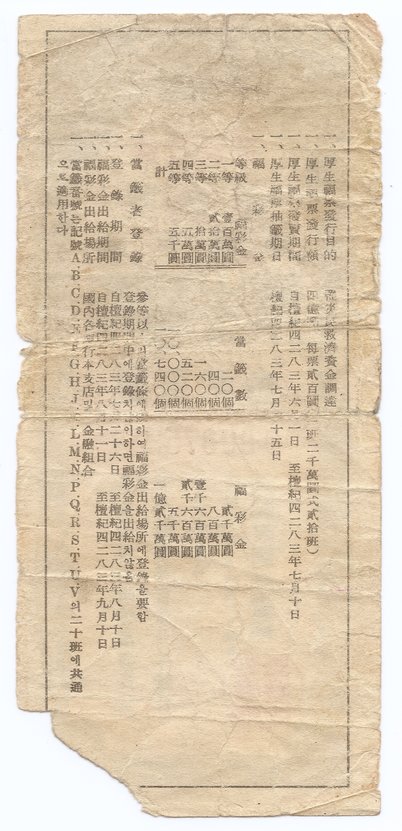 一、厚生福票發行目的 罹災民救濟資金調達
一、厚生福票發行額 四億圓（每票貳百圓 班二千萬圓式貳拾班）
一、厚生福票發賣期間 自檀紀四二八三年六月一日 至檀紀四二八三年七月十日
一、厚生福票抽籤期日 檀紀四二八三年七月十五日
一、福彩金
等級 福彩金 當籤數 福彩金
一等 壹百萬圓 二〇個 貳千萬圓
二等 貳拾萬圓 四〇個 八百萬圓
三等 拾萬圓 一六〇個 壹千六百萬圓
四等 五萬圓 五二〇個 貳千六百萬圓
五等 五千圓 一〇、〇〇〇個 五千萬圓
計 一〇、七四〇個 一億貳千萬圓
一、當籤者登錄 參等以 의當籤錄에 하여福彩金出給場所에登錄을要함
登錄期間中에登錄치 이하면福彩金을出給치않음
一、登錄期間 自檀紀四二八三年七 二十六日 至檀紀四二八三年八月十日
一、福彩金出給期間 自檀紀四二八三年八月十一日 至檀紀四二八三年九月十日
一、福彩金出給場所 國內各銀行本支店및 金融組合
一、當籤番號는記號A.B.C.D.E.F.G.H.J. .L.M.N.P.Q.R.S.T.U.V의二十班에共通
으로適用한다